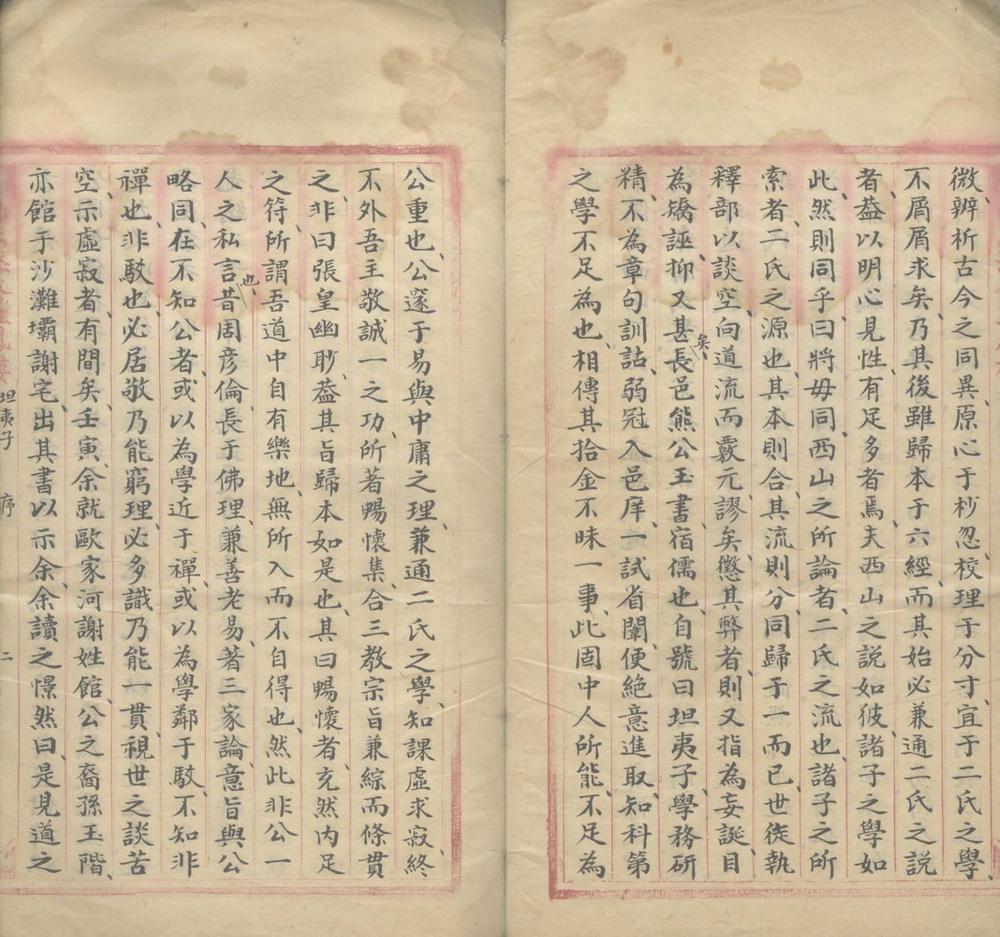 微辨析古今之同異原心于杪忽校理于分寸宜于二氏之學
不屑屑求矣乃其後雖歸本于六經而其始必兼通二氏之說
者葢以明心見性有足多者焉夫西山之說如彼諸子之學如
此然則同乎曰將毋同西山之所論者二氏之流也諸子之所
索者二氏之源也其本則合其流則分同歸于一而已世徒執
釋部以談空向道流而覈元謬矣懲其弊者則又指為妄誕目
為矯誣抑又甚矣長邑熊公玉書宿儒也自號曰坦夷子學務研
精不為章句訓詁弱冠入邑庠一試省闈便絕意進取知科第
之學不足為也相傳其拾金不昧一事此固中人所能不足為
公重也公邃于易與中庸之理兼通二氏之學知課虛求寂終
不外吾主敬誠一之功所著暢懷集合三教宗旨兼綜而條貫
之非曰張皇幽眇葢其旨歸本如是也其曰暢懷者充然內足
之符所謂吾道中自有樂地無所入而不自得也然此非公一
人之私言也昔周彥倫長于佛理兼善老易著三家論意旨與公
略同在不知公者或以為學近于禪或以為學鄰于駁不知非
禪也非駁也必居敬乃能窮理必多識乃能一貫視世之談苦
空示虛寂者有間矣壬寅余就歐家河謝姓館公之裔孫玉階
亦館于沙灘壩謝宅出其書以示余余讀之憬然曰是見道之
坦夷子 序 二